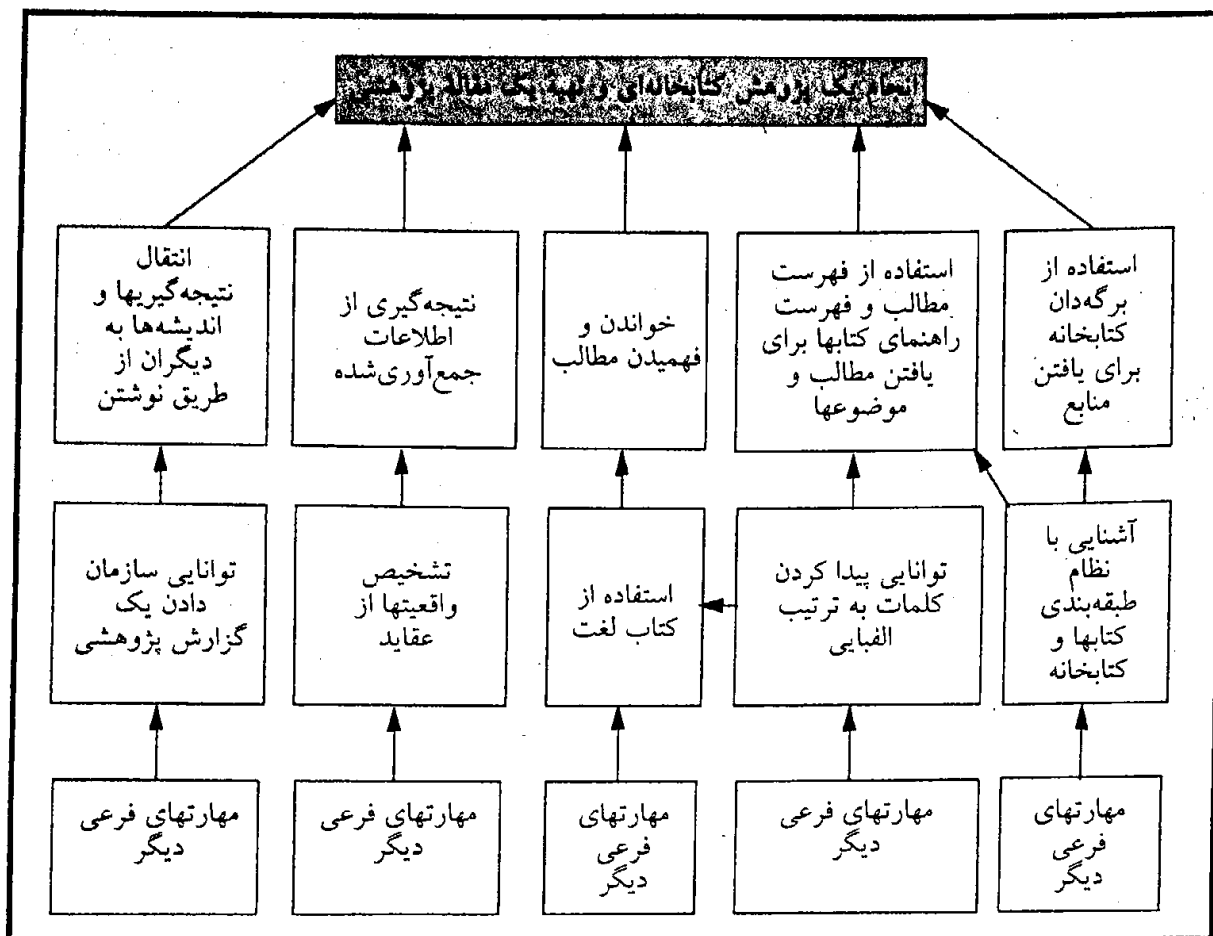 انجام یک پژوهش کتابخانه‌ای و تهیهٔ یک مقالهٔ پژوهشی
استفاده از
برگه‌دان
کتابخانه
برای یافتن
منابع
استفاده از فهرست
مطالب و فهرست
راهنمای کتابها برای
یافتن مطالب و
موضوعها
خواندن و
فهمیدن مطالب
نتیجه‌گیری از
اطلاعات
جمع‌آوری‌شده
انتقال
نتیجه‌گیریها و
اندیشه‌ها به
دیگران از
طریق نوشتن
آشنایی با
نظام
طبقه‌بندی
کتابها و
کتابخانه
توانایی پیدا کردن
کلمات به ترتیب
الفبایی
استفاده از
کتاب لغت
تشخیص
واقعیتها از
عقاید
توانایی سازمان
دادن یک
گزارش پژوهشی
مهارتهای
فرعی
دیگر
مهارتهای فرعی
دیگر
مهارتهای
فرعی
دیگر
مهارتهای فرعی
دیگر
مهارتهای فرعی
دیگر